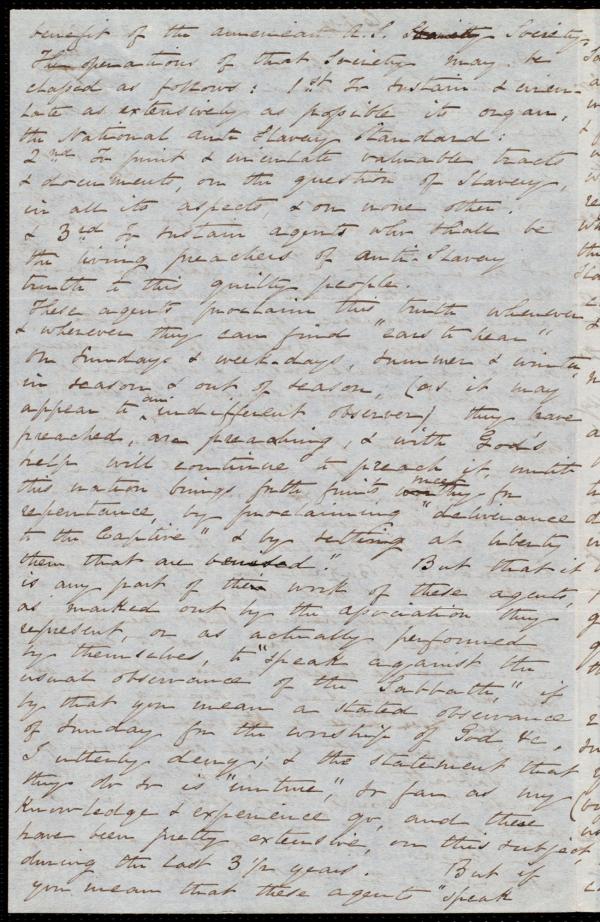 benefit of the American A.S. Society Society,
The operations of that Society may be
classed as follows: 1st To sustain & circu-
late as extensively as possible its organ,
the National Anti Slavery Standard:
2nd To print & circulate valuable tracts
& documents, on the question of Slavery,
in all its aspects, & on none other.
& 3rd To sustain agents who shall be
the living preachers of anti-Slavery
truth to this guilty people.
These agents proclaim this truth whenever
& wherever they can find "ears to hear"
on Sundays & week-days, summer & winter,
in season & out of season, (as it may
appear to an indifferent observer) they have
preached, are preaching, & with God's
help will continue to preach it, until
this nation brings forth fruits meet for
repentance, by proclaiming "deliverance
to the Captive" & by setting at liberty
them that are bruised." But that it
is any part of the work of these agents,
as marked out by the association they
represent, or as actually performed
by themselves, to "speak against the
usual observance of the Sabbath," if
by that you mean a stated observance
of Sunday for the worship of God &c,
I utterly deny; & the statement that
they do so is "untrue," so far as my
knowledge & experience go, and these
have been pretty extensive, on this subject,
during the last 3 1/2 years. But if
you mean that these agents "speak